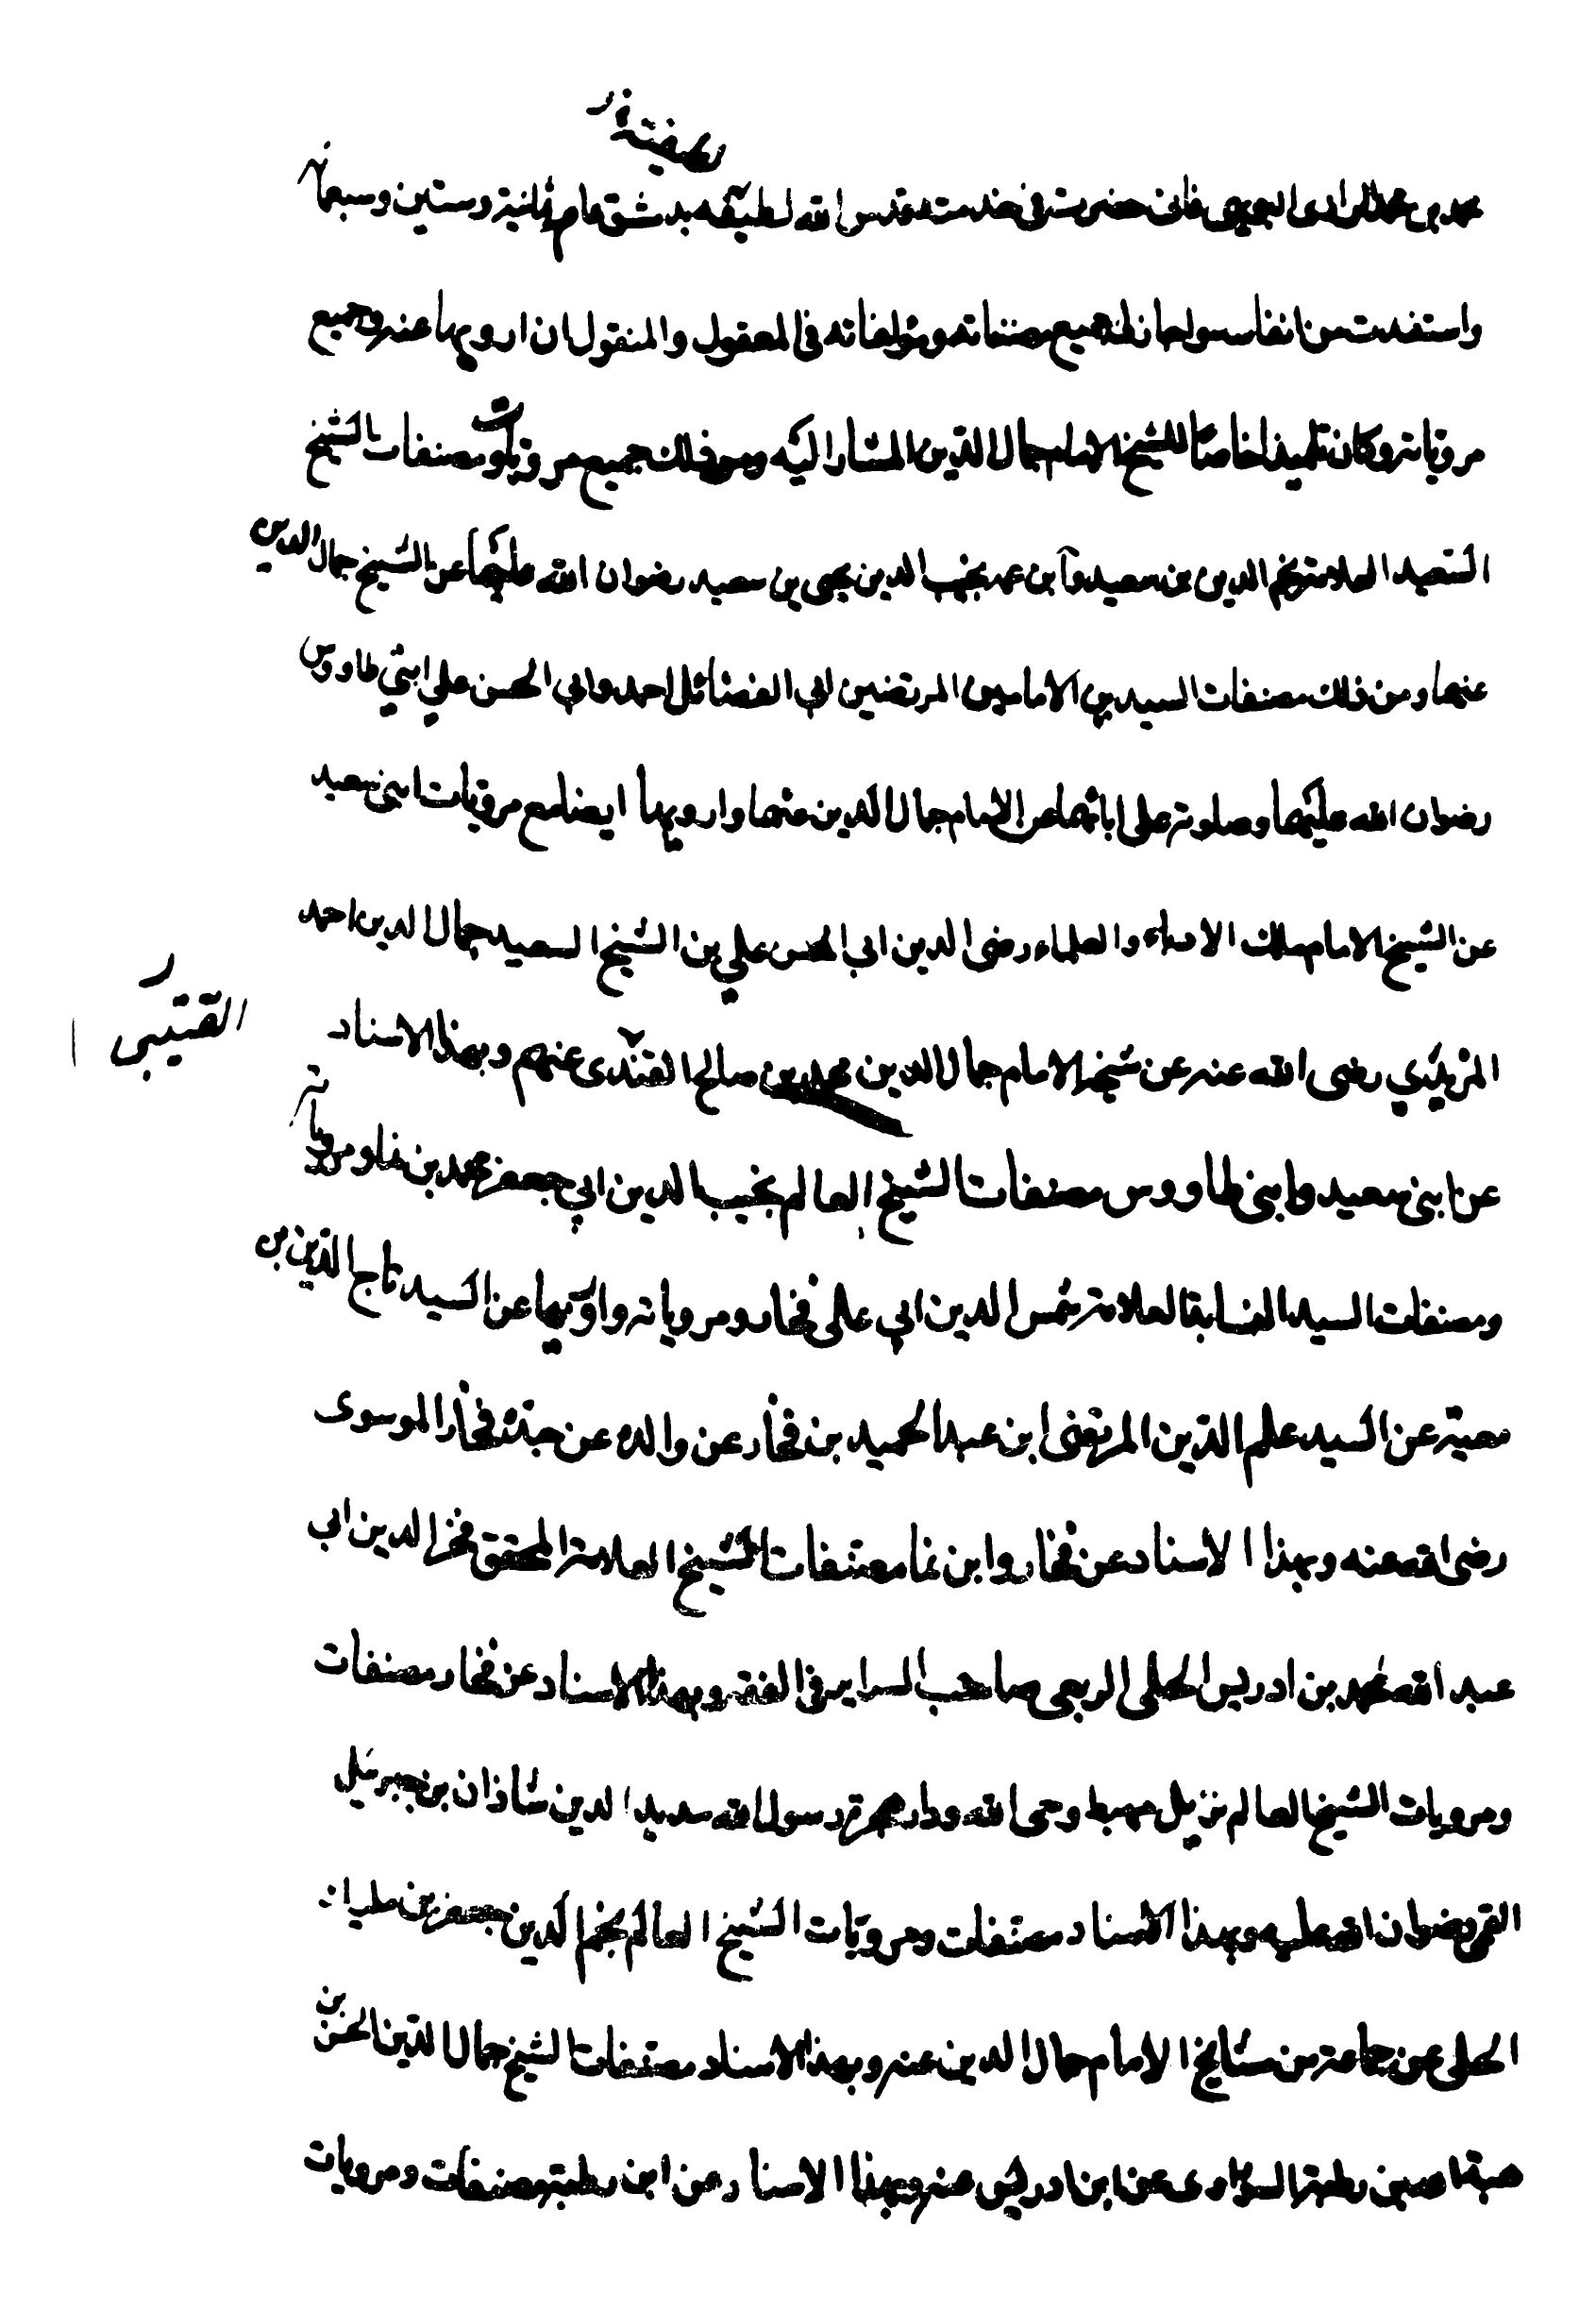 محمد بن محمد الرازي البويهي فاني حضرت في خدمته قدس الله لطيفه بدمشق عام ثمانية وستين وسبعمائة
واستفدت من انفاسه واجاز لي جميع مصنفاته ومؤلفاته في المعقول والمنقول ان ارويها عنه وجميع
مروياته وكان تلميذا خاصا للشيخ الامام جمال الدين المشار اليه ومن ذلك جميع مرويات ومصنفات الشيخ
السعيد العلامة نجم الدين بن سعيد وابن عمه نجيب الدين يحيى بن سعيد رضوان الله عليهما عن الشيخ جمال الدين
عنهما ومن ذلك مصنفات السيدين الامامين المرتضين ابي الفضائل احمد وابي الحسن علي ابني طاووس
رضوان الله عليهما وصلوته على ابائهما عن الامام جمال الدين عنهما وارويها ايضا مع مرويات ابني سعيد
عن الشيخ الامام ملك الادباء والعلماء رضي الدين ابي الحسن علي بن الشيخ السعيد جمال الدين احمد
المزيدي رضي الله عنه عن شيخه الامام جمال الدين محمد بن صالح القندى عنهم وبهذا الاسناد
القتيبى
عن ابني سعيد وابني طاووس مصنفات الشيخ العالم نجيب الدين ابي جعفر محمد بن نما ومروياته
ومصنفات السيد النسابة العلامة شمس الدين ابي علي فخار ومروياته وارويها عن السيد تاج الدين بن
معية عن السيد علم الدين المرتضى ابن عبد الحميد بن فخار عن والده عن جده فخار الموسوى
رضي الله عنه وبهذا الاسناد عن فخار وابن نما مصنفات الشيخ العلامة المحقق فخر الدين ابي
عبد الله محمد بن ادريس الحلي الربعي صاحب السراير في الفقه وبهذا الاسناد عن فخار مصنفات
ومرويات الشيخ العالم نزيل مهبط وحي الله ودار هجرة رسول الله سديد الدين شاذان بن جبرئيل
القمي رضوان الله عليه وبهذا الاسناد مصنفات ومرويات الشيخ العالم نجم الدين جعفر بن مليك
الحلي عن جماعة من مشايخ الامام جمال الدين عنه وبهذا الاسناد مصنفات الشيخ جمال الدين الحسن بن
هبة الله بن رطبة السوراوى عن ابن ادريس عنه وبهذا الاسناد عن ابن رطبة مصنفات ومرويات